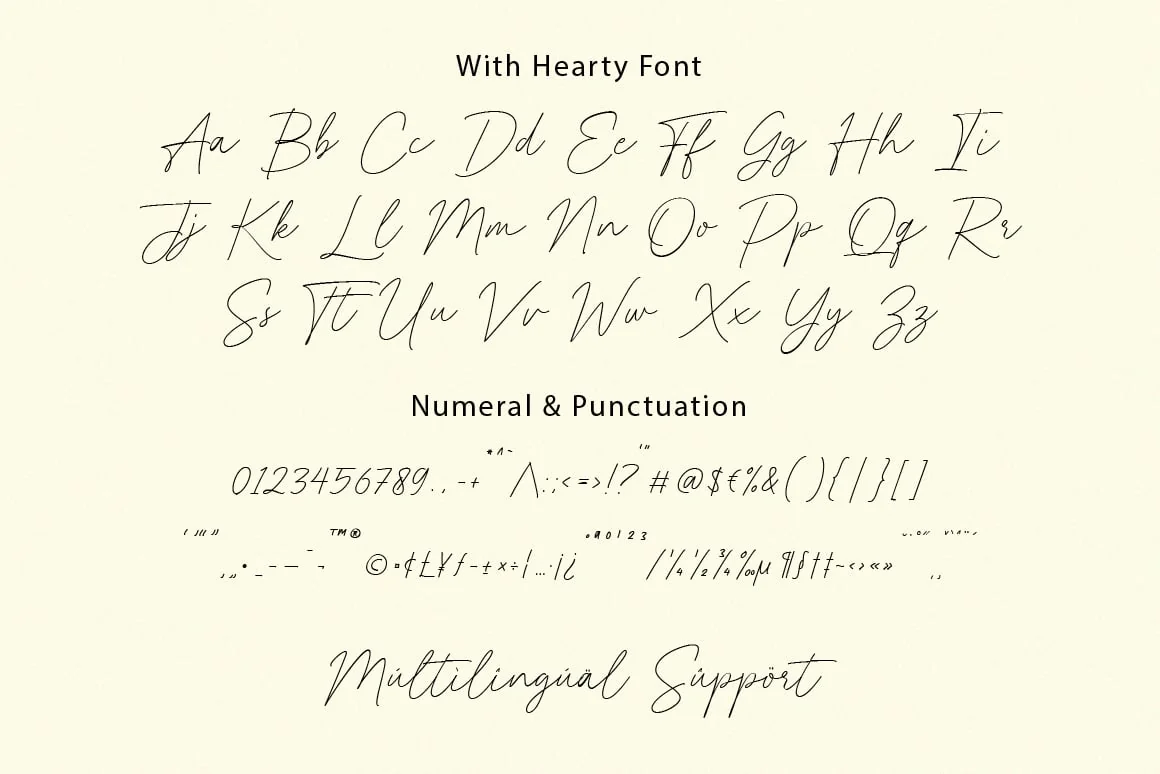 With Hearty Font
Aa Bb Cc Dd Ee Ff Gg Hh Ii
Jj Kk Ll Mm Nn Oo Pp Qq Rr
Ss Tt Uu Vv Ww Xx Yy Zz
Numeral & Punctuation
0123456789.,-+*^~/\:;<=>!?'"#@$€%&(){|}[]
‚„•_–—¯¬™®©¤¢£¥ƒ-±×÷¦…·¡¿ºª0123⁄¼½¾‰µ¶§†‡~‹›«»
Múltìlingúäl Súppört